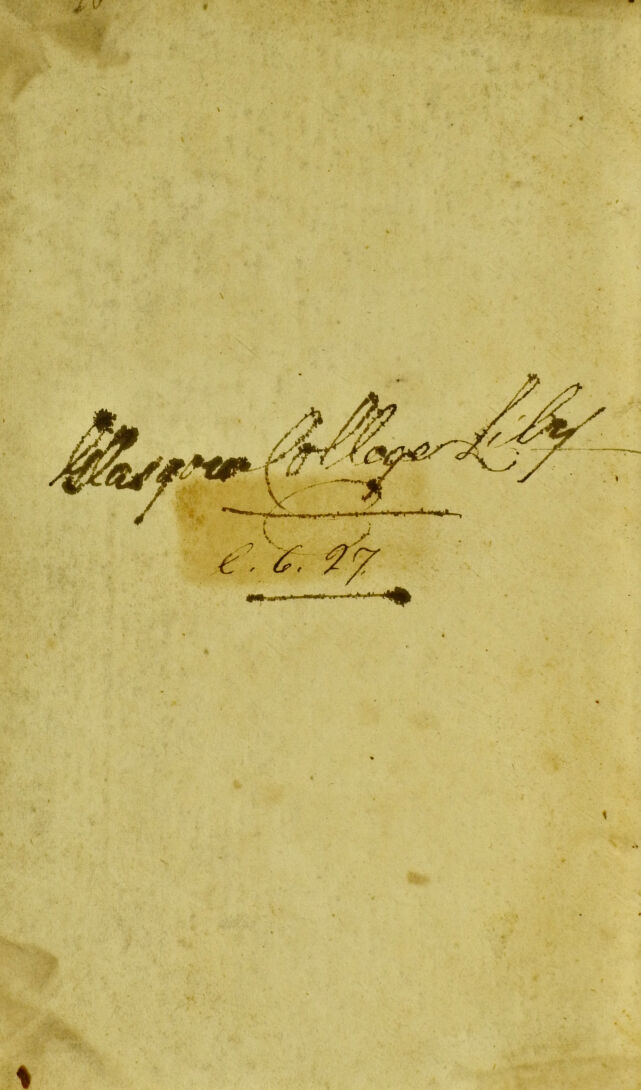 Glasgow College Liby
C. 6. 27.